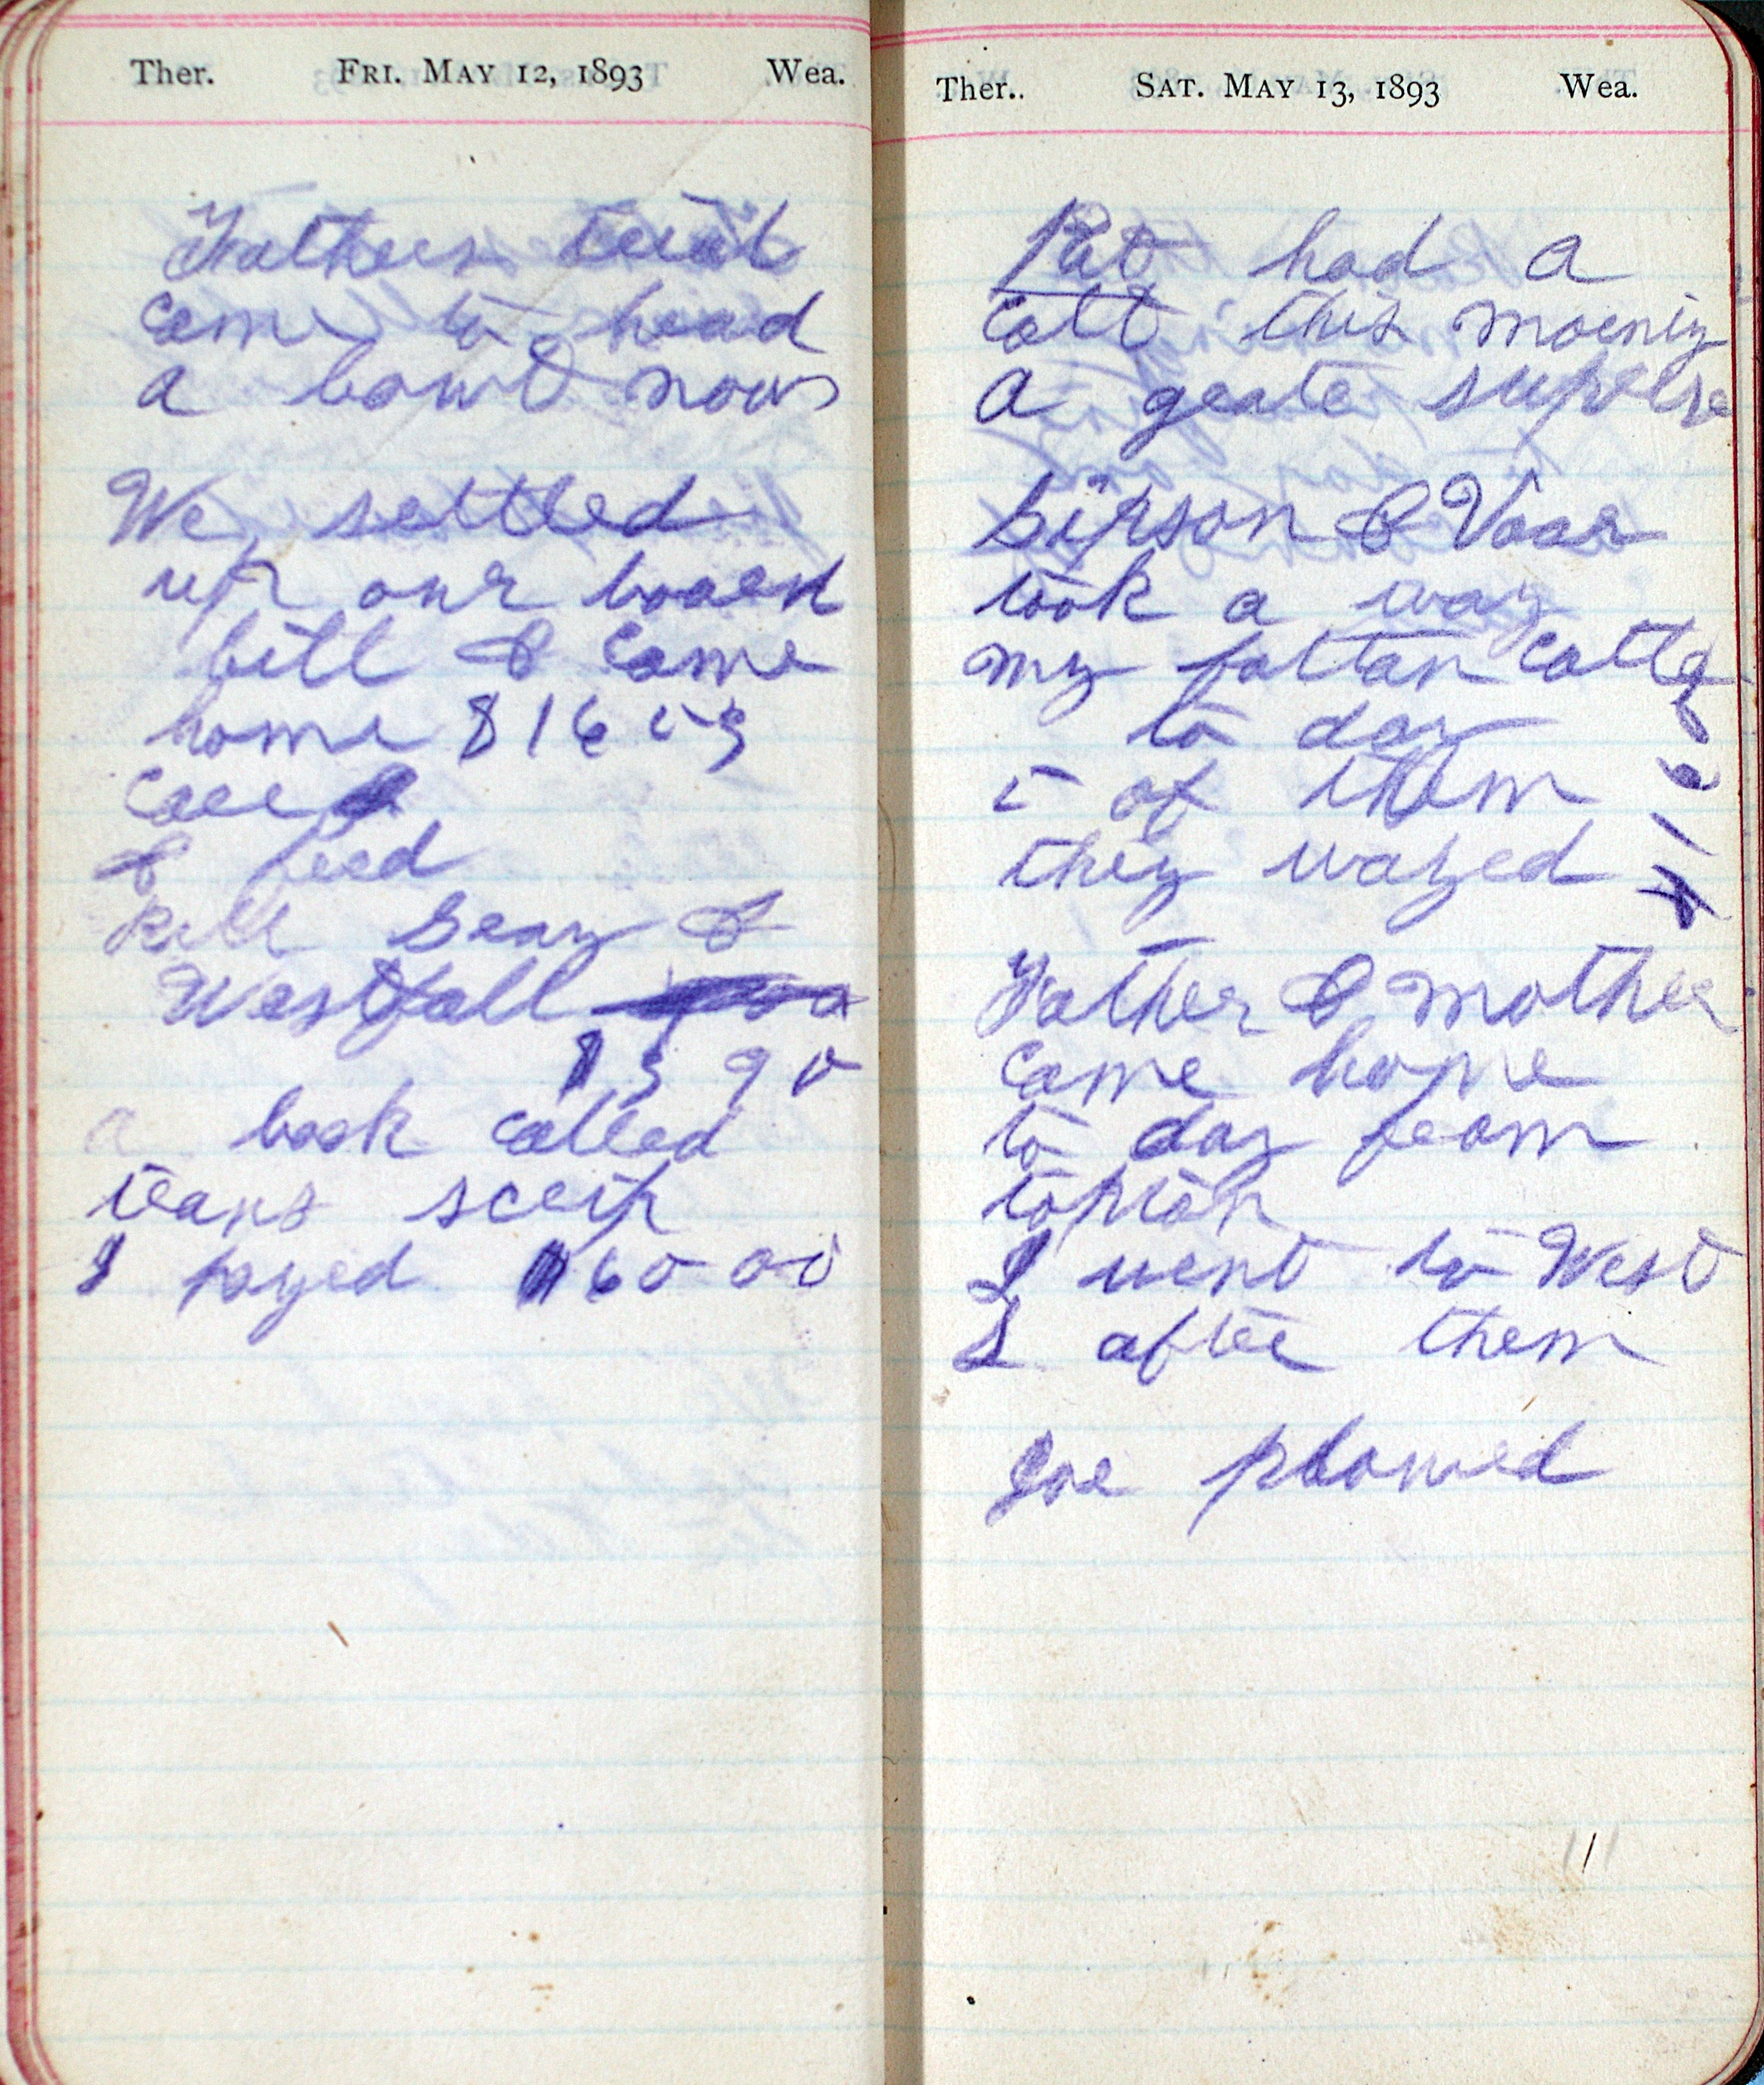 Ther. FRI. MAY 12, 1893 Wea.
Fathers trial
come to head
a bowt noon
We settled
up our board
bill & come
home $16 53
Corn
& feed
Kill Seay &
Westfall
$3 90
a book called
trans scrip
I payed $60 00
Ther.. SAT. MAY 13, 1893 Wea.
Pat had a
Colt this morning
a grate suprise
Sipson & Voar
took a way
my fattan Cattle
to day
5 of them
they wayed
Father & mother
Come home
to day from
topton
I went to West
L after them
Joe plowed